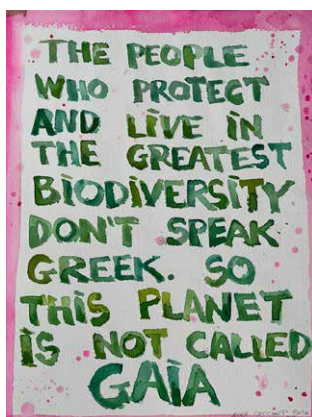 THE PEOPLE
WHO PROTECT
AND LiVE iN
THE GREATEST
BiODiVERSiTY
DON'T SPEAK
GREEK. SO
THiS PLANET
iS NOT CALLED
GAiA